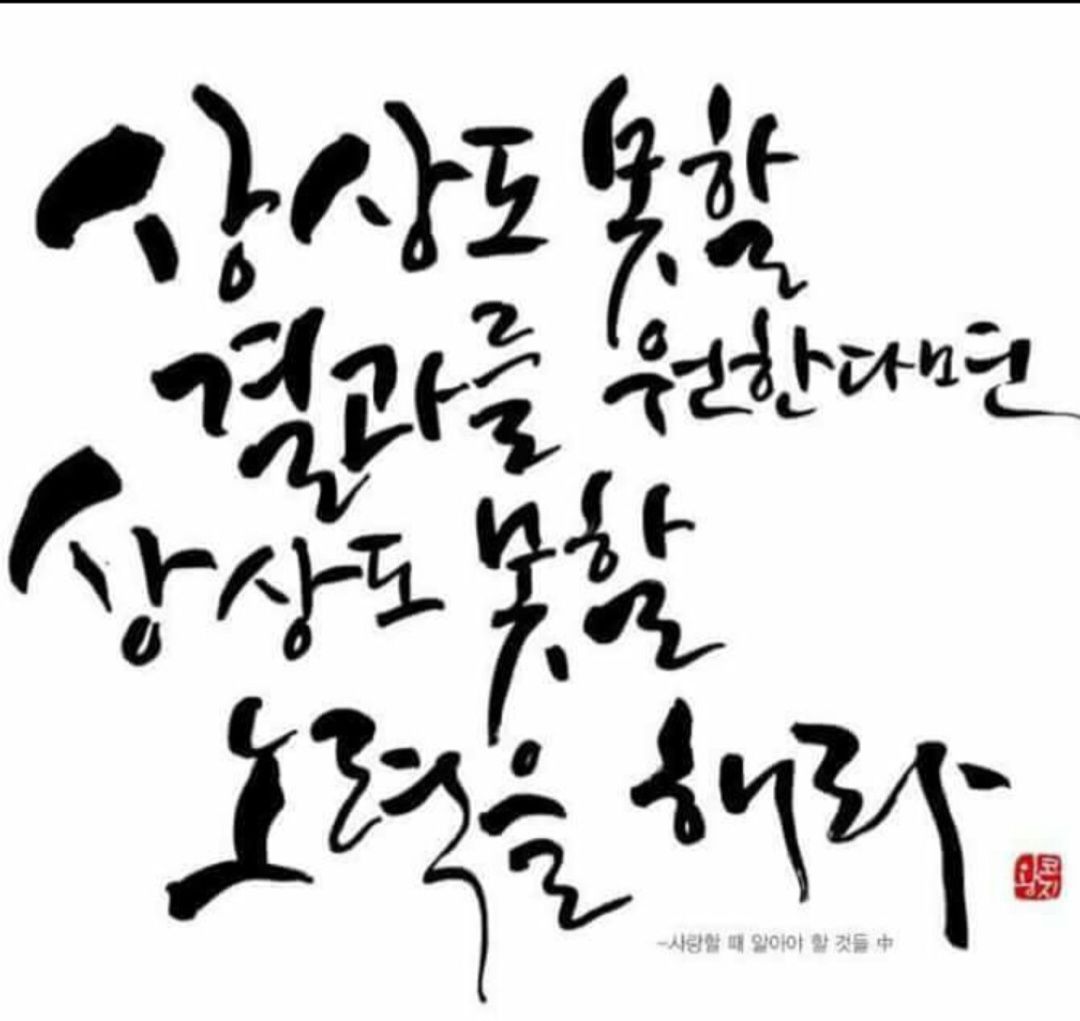 상상도 못할
결과를 원한다면
상상도 못할
노력을 해라
-사랑할 때 알아야 할 것들 中